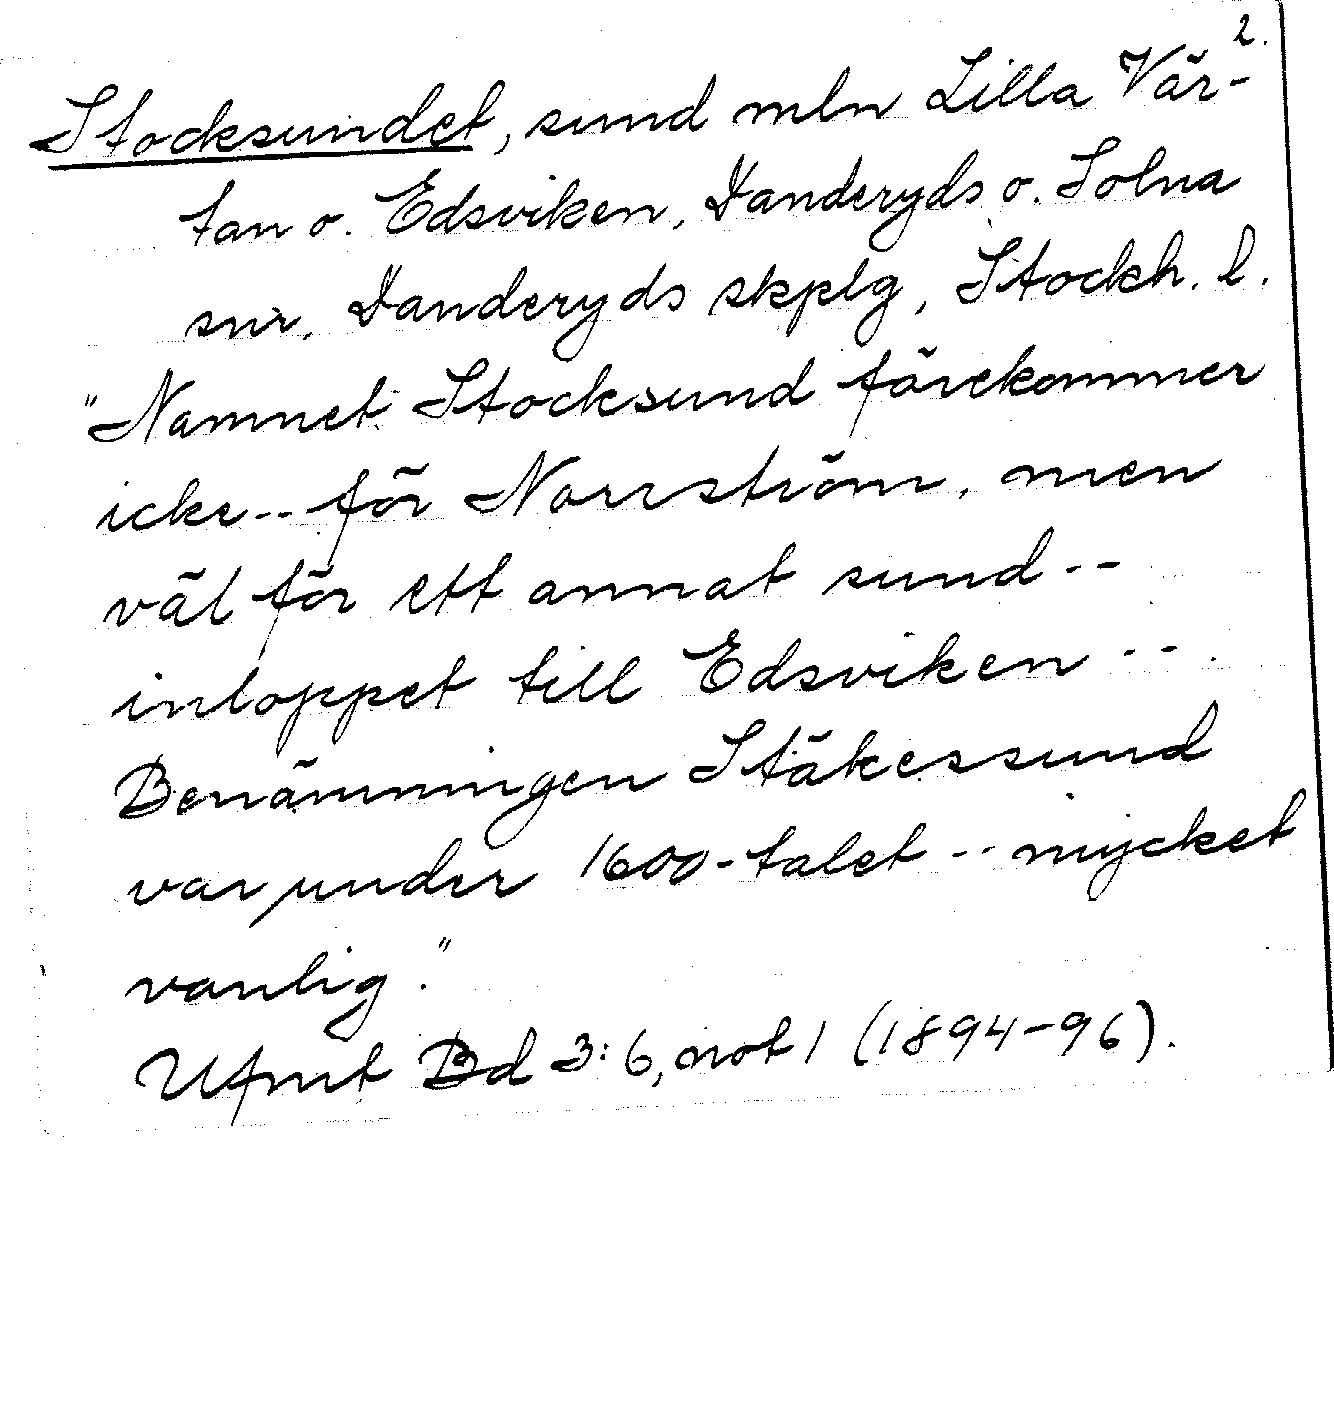 2.
Stocksundet, sund mln Lilla Vär-
tan o. Edsviken, Danderyds o. Solna
snr, Danderyds skplg, Stockh. l.
"Namnet Stocksund förekommer
icke -- för Norrström, men
väl för ett annat sund --
inloppet till Edsviken --.
Benämningen Stäkessund
var under 1600-talet -- mycket
vanlig."
Ufmt Bd 3: 6, not 1 (1894-96).